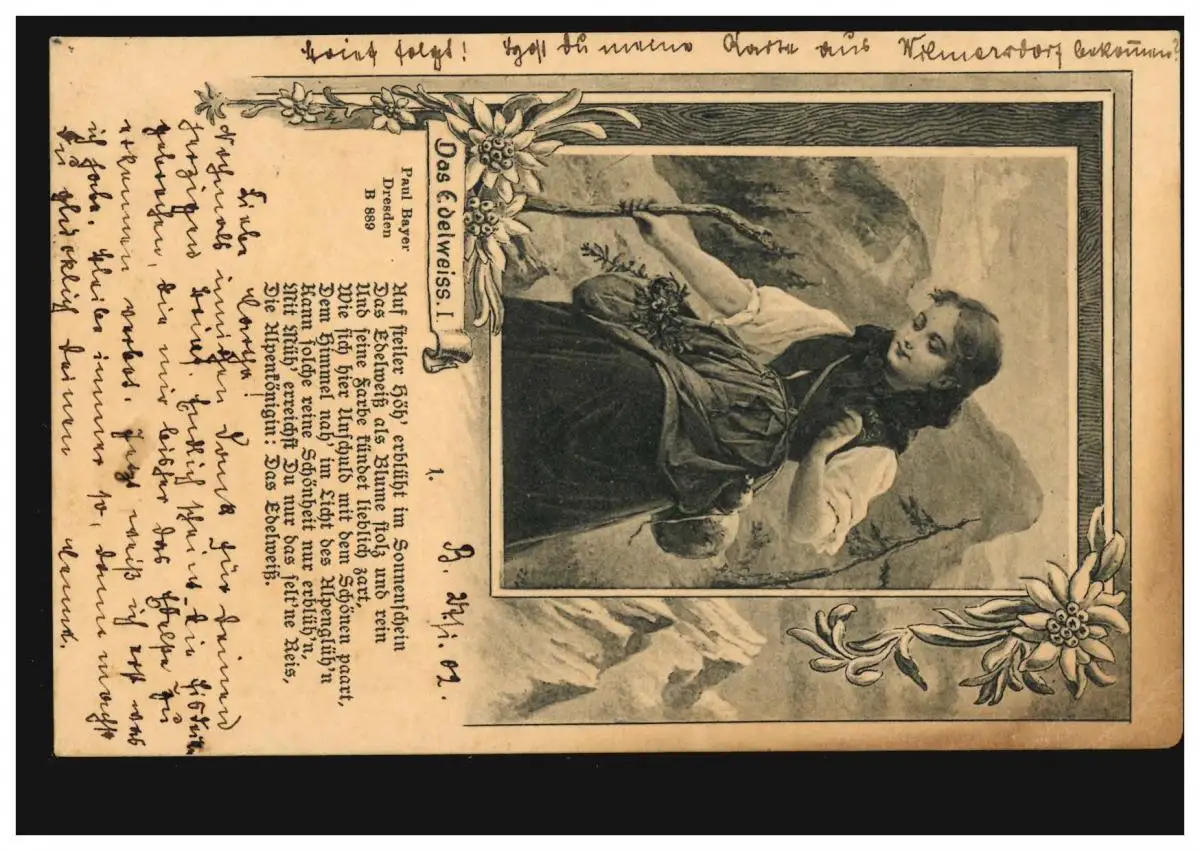 Brief folgt! Hast Du meine Karte aus Wilmersdorf bekommen?
Das Edelweiss. I.
Paul Bayer
Dresden
B 889
Auf steiler Höh' erblüht im Sonnenschein
Das Edelweiß als Blume stolz und rein
Und seine Farbe kündet lieblich zart,
Wie sich hier Unschuld mit dem Schönen paart,
Dem Himmel nah' im Licht des Alpenglüh'n
Kann solche reine Schönheit nur erblüh'n,
Mit Müh' erreichst Du nur das selt'ne Reis,
Die Alpenkönigin: Das Edelweiß.
1. B. 02.
Liebe
Nochmals innigen Dank für Deinen
herzigen Brief. Endlich scheint die
gebrochen, die mir bisher das zu
erkennen verbot. Jetzt weiß ich erst was
ich habe. Bleibe immer so, dann machst
Du glücklich Deinen